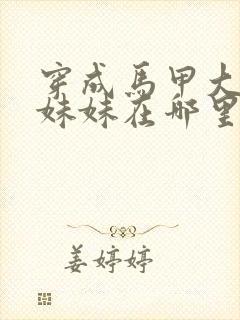 穿成馬甲大
妹妹在哪里
姜婷婷